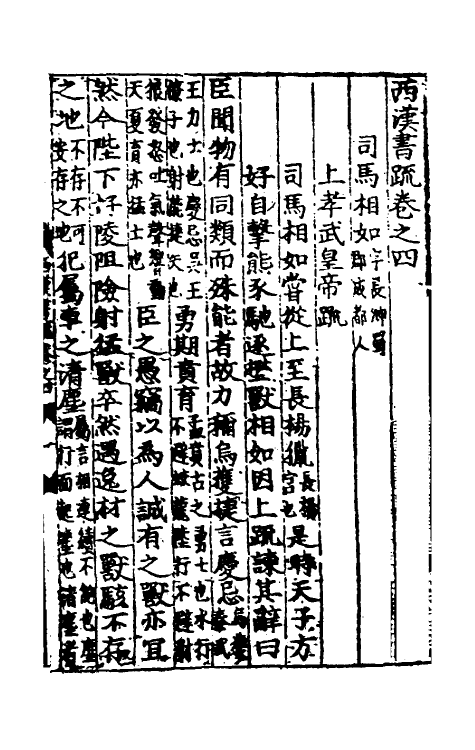 西漢書疏卷之四
司馬相如字長卿蜀郡成都人
上孝武皇帝疏
司馬相如嘗從上至長楊獵長楊宮也是時天子方
好自擊熊豕馳逐壄獸相如因上疏諫其辭曰
臣聞物有同類而殊能者故力稱烏獲捷言慶忌烏獲秦武
王力士也慶忌吳王僚子也射能捷矢也勇期賁育孟賁古之勇士也水行不避蛟龍陸行不避豺
狼發怒吐氣聲響動天夏育亦猛士也臣之愚竊以為人誠有之獸亦宜
然今陛下好陵阻險射猛獸卒然遇逸材之獸駭不存
之地不存不可安存之地也犯屬車之清塵屬言相連續不絶也塵謂行而起塵也清塵者